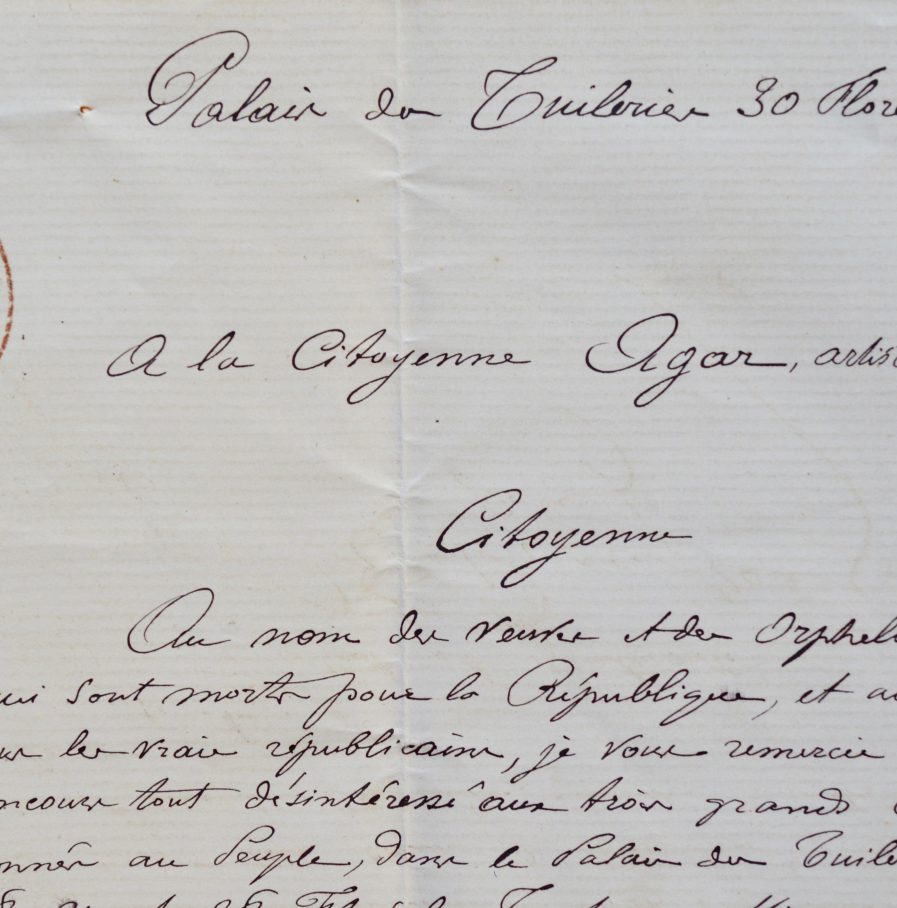 Palais des Tuileries 30 Flore
A la Citoyenne Agar, artis
Citoyenne
Au nom des veuves et des Orpheli
ui sont morts pour la République, et au
ur les vrais républicains, je vous remercie
ncours tout désintéressé aux trois grands
onnés au Peuple, dans le Palais des Tuile